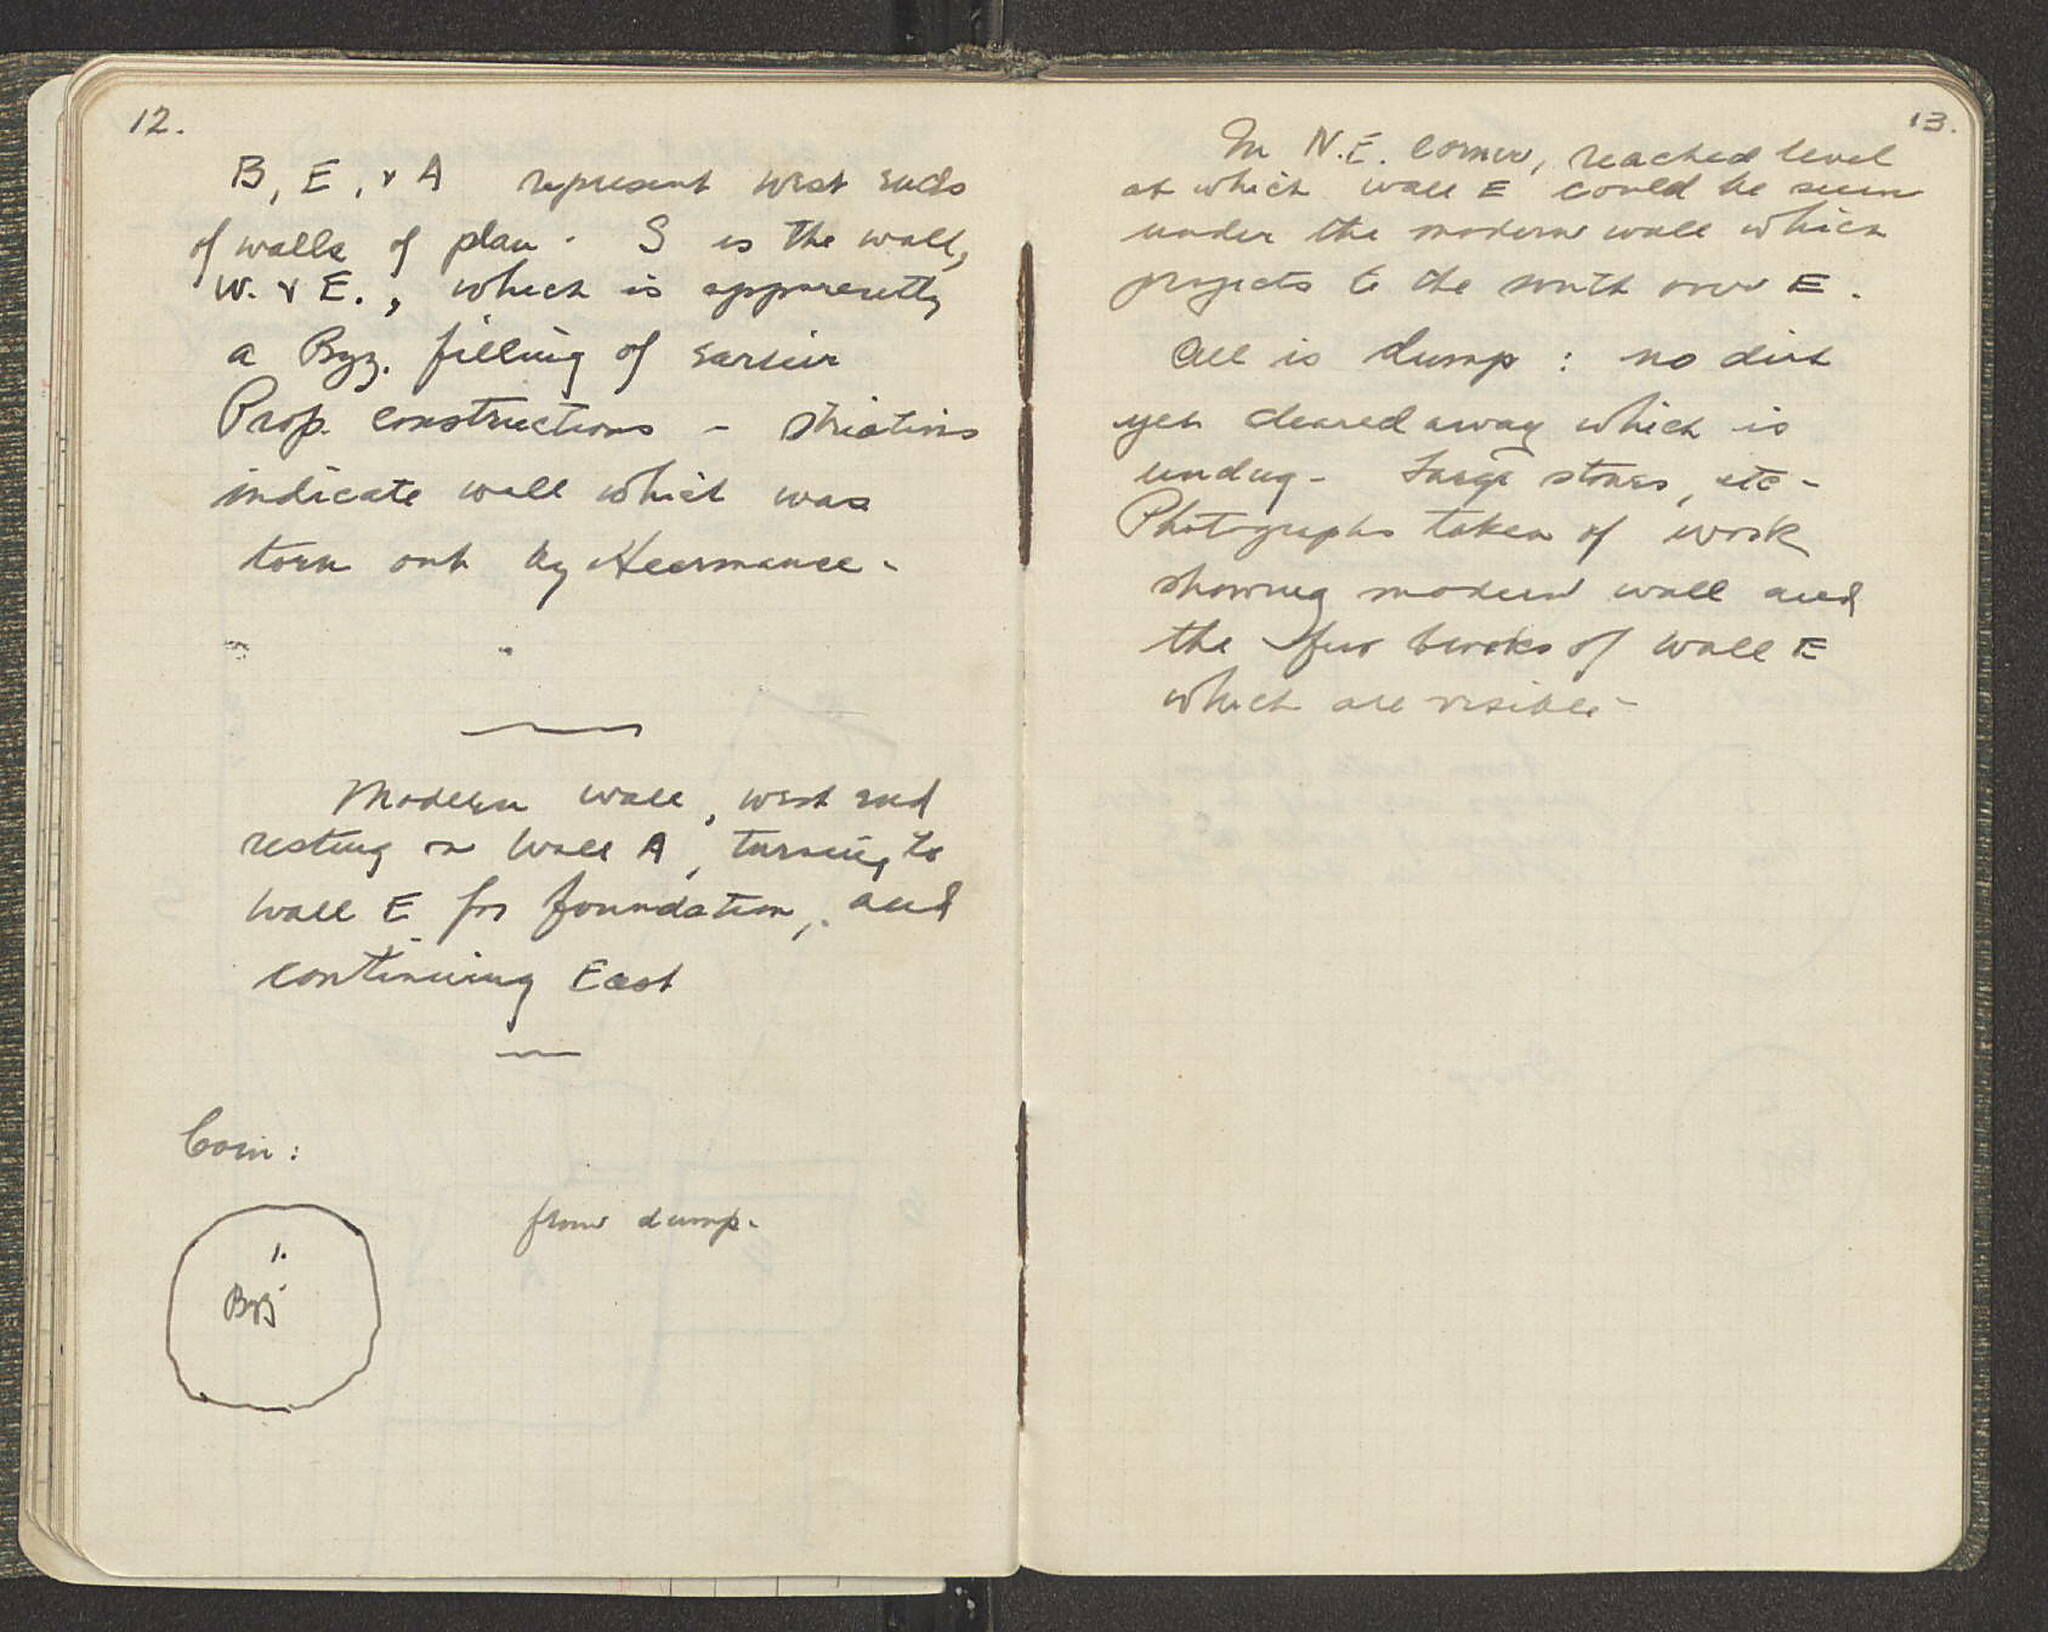 12.
B, E, & A represent west ends
of walls of plan. S is the wall,
W. & E., which is apparently
a Byz. filling of earlier
Prop. constructions - striations
indicate wall which was
torn out by Heermance -
Modern wall, west end
resting on wall A, turning to
wall E for foundation, and
continuing East
Coin:
1.
Byz
from dump.
13.
In N.E. corner, reached level
at which wall E could be seen
under the modern wall which
projects to the south over E.
All is dump : no dirt
yet cleared away which is
undug - Large stones, etc -
Photographs taken of work
showing modern wall and
the few blocks of wall E
which are visible -